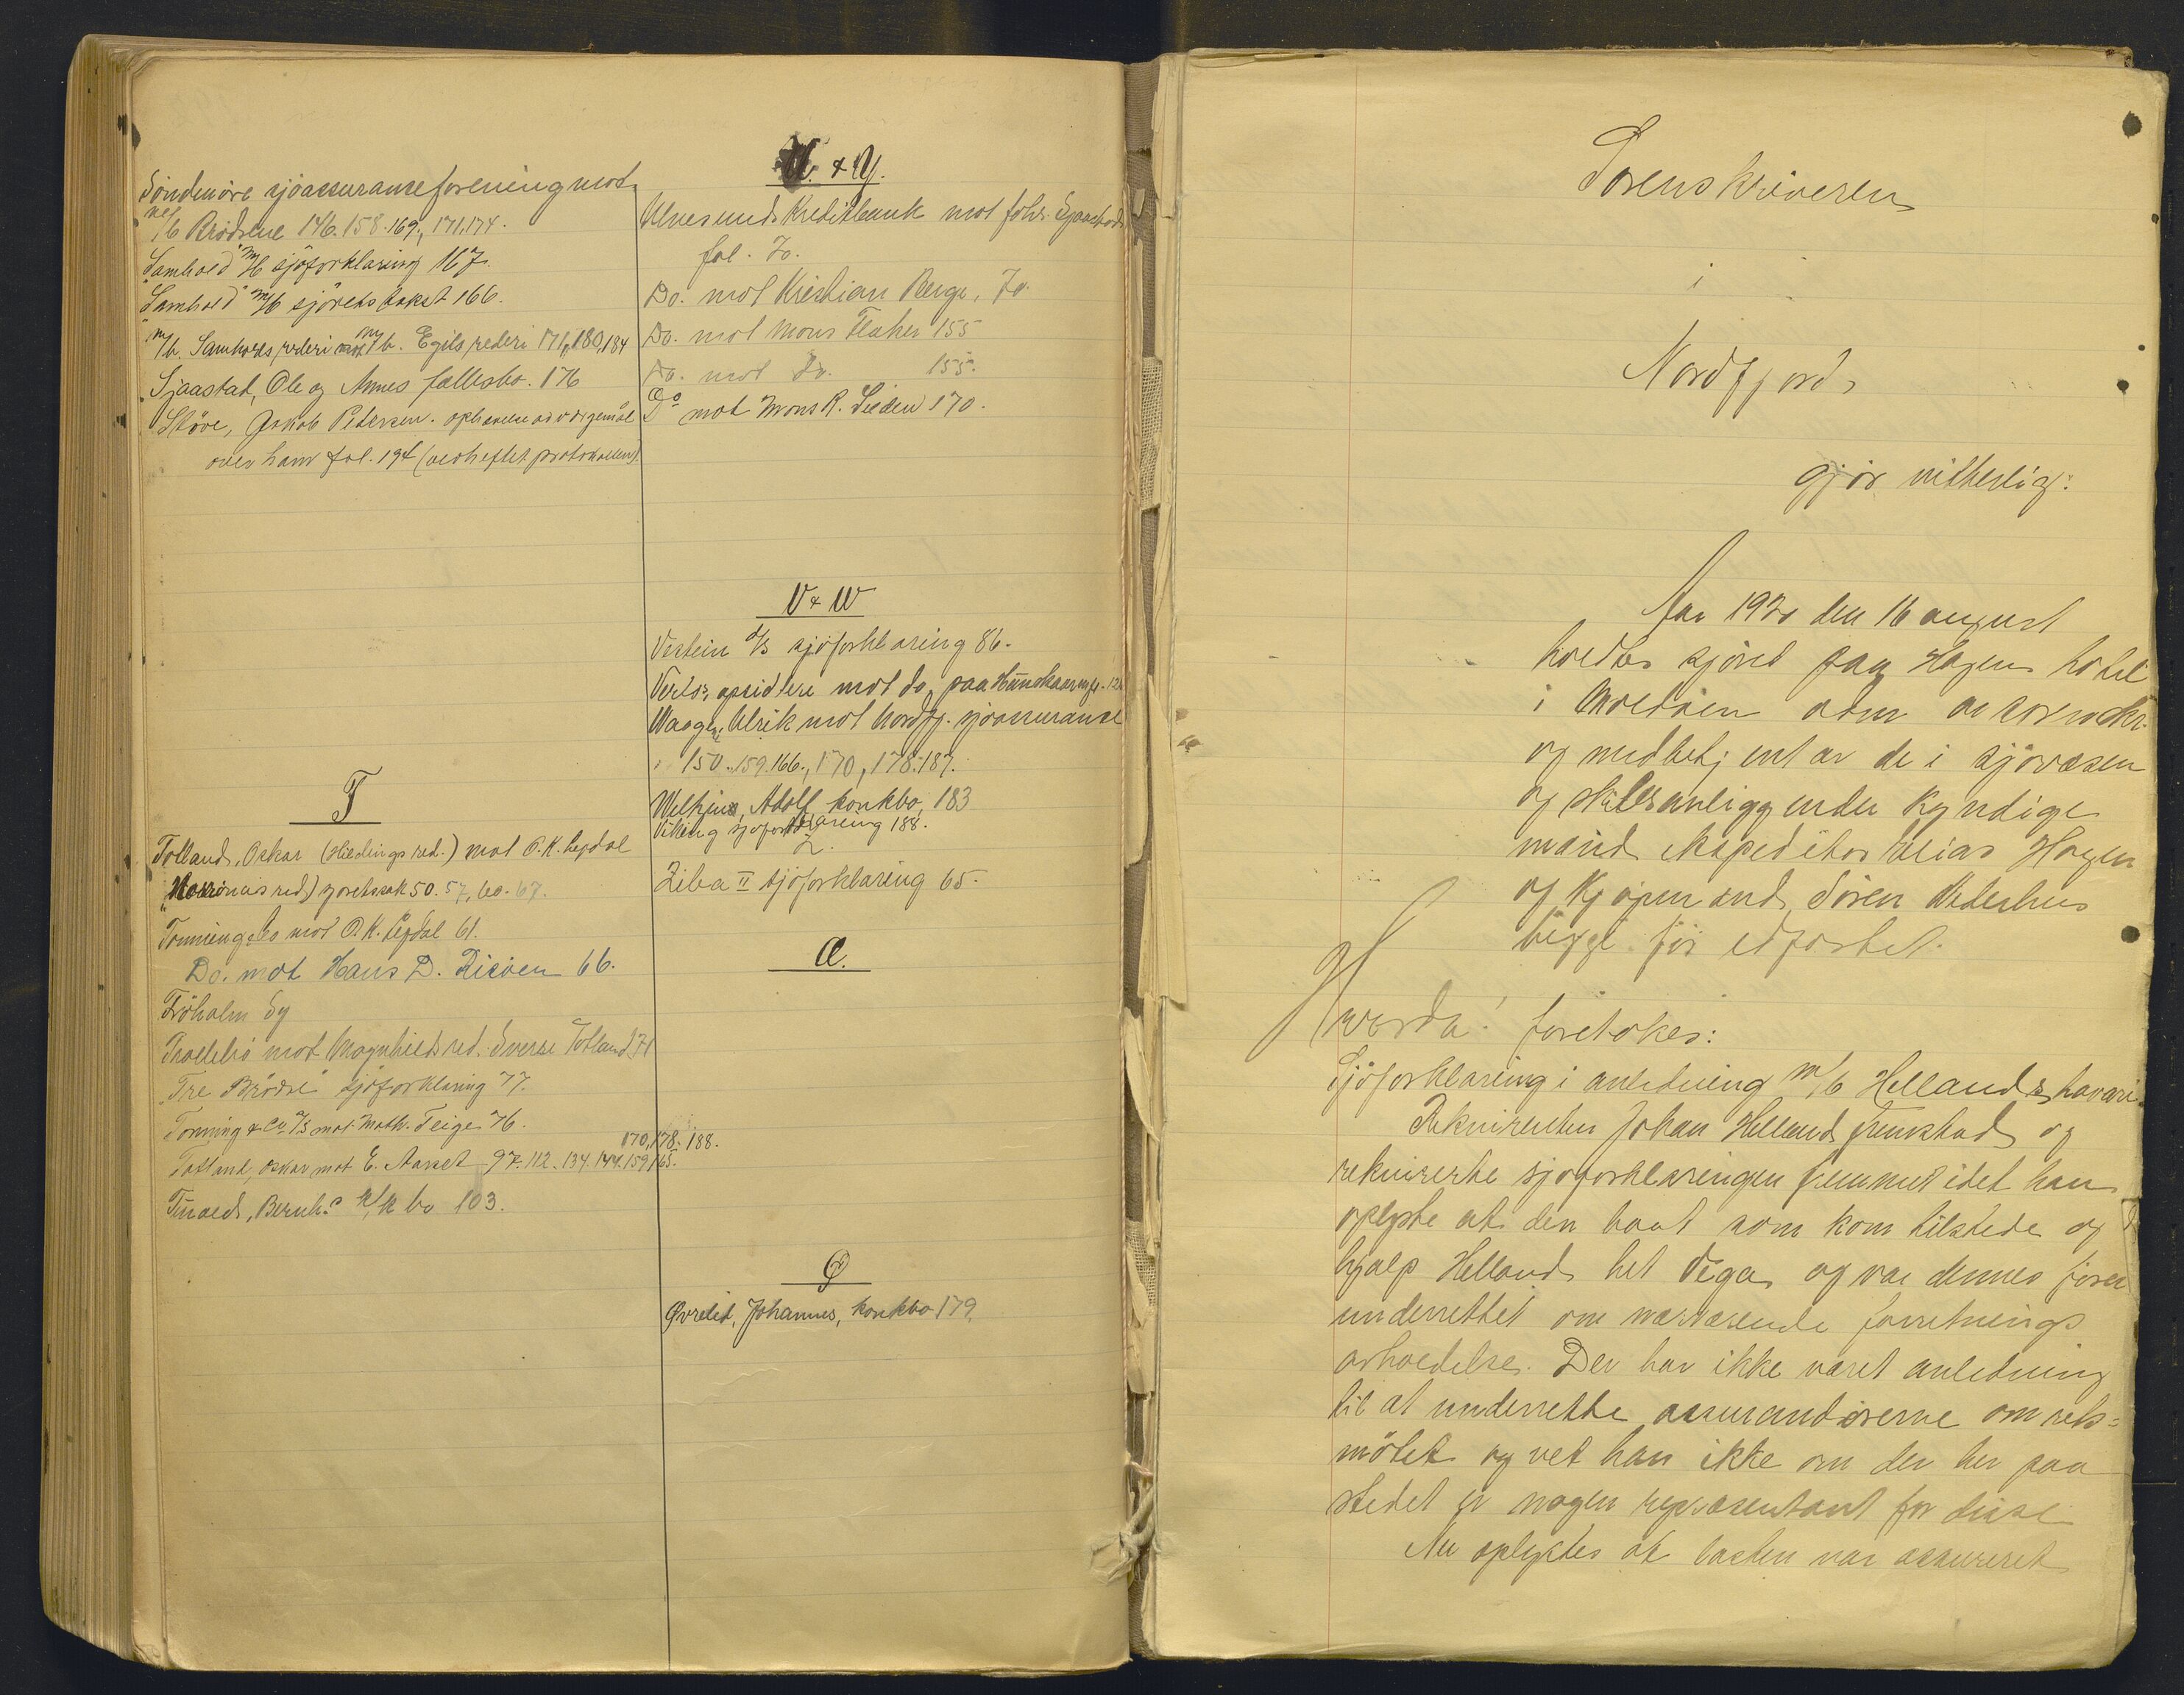 Söndmöre sjöassuranseforening mot
m/b Brödrene 146. 158. 169., 171, 174.
"Samhold" m/b sjöforklaring 167.
"Samhold" m/b sjöretstakst 166.
m/b. Samholds rederi mot m/b. Egils rederi 171, 180, 184
Sjaastad, Ole og Annes fællesbo. 176
Störe, Jakob Petersen. ophævelse av værgemål
over ham fol. 194 (vedheftet protokollen).
T
Totland, Oskar (Hildings red.) mot O. K. Lepdal
red.) gjoretssak 50. 57, 60. 67.
mot O. K. Lepdal 61.
Do. mot Hans D. Risöen 66.
Tröholm Sy
mot Magnhilds red. Sverre Totland 71
"Tre Brödre" sjöforklaring 77.
Tonning & Co A/S mot Math. Teige 76.
170, 178. 188.
Totland, Oskar mot E. Aarset 97. 112. 134. 144. 159 165.
Bernh.s k/k bo 103.
U. & Y.
Ulvesunds Kreditbank mot Johs. Sjaastad
fol. 70.
Do. mot Kristian Berge, 70.
Do. mot Mons Flister 155
Do. mot Do. 155.
Do mot Mons R. Lieden 170.
V & W
Vestein d/s sjöforklaring 86.
opsiddere mot do. paa
Waage, Ulrik mot Nordfj. sjöassuranse
150., 159. 166., 170, 178. 187.
Adolf konkbo, 183
Viking sjöforklaring 188.
Z.
Ziba II sjöforklaring 65.
Æ.
Ø
Øvrelid, Johannes, konkbo 179.
Sorenskriveren
i
Nordfjord
gjør vitterlig:
Aar 1920 den 16 august
holdtes sjöret paa Hagens hotel
i Moldöen adm av sorenskr.
og medbetjent av de i sjövæsen
og skibsanliggender kyndige
mænd ekspeditör Elias Hagen
og kjöpmand Sören Wederhus
begge för edfæstet.
Hvorda! foretokes:
Sjöforklaring i anledning m/b Hellands havari.
Rekvirenten Johan Helland fremstod og
rekvirerte sjöforklaringen fremmet idet han
oplyste at den baat som kom tilstede og
hjalp Helland het Vega og var dennes förer
underrettet om nærværende forretnings
avholdelse. Der har ikke været anledning
til at underrette assurandörerne om rets=
mötet og vet han ikke om der her paa
stedet er nogen representant for disse
Nu oplystes at lasten var assureret